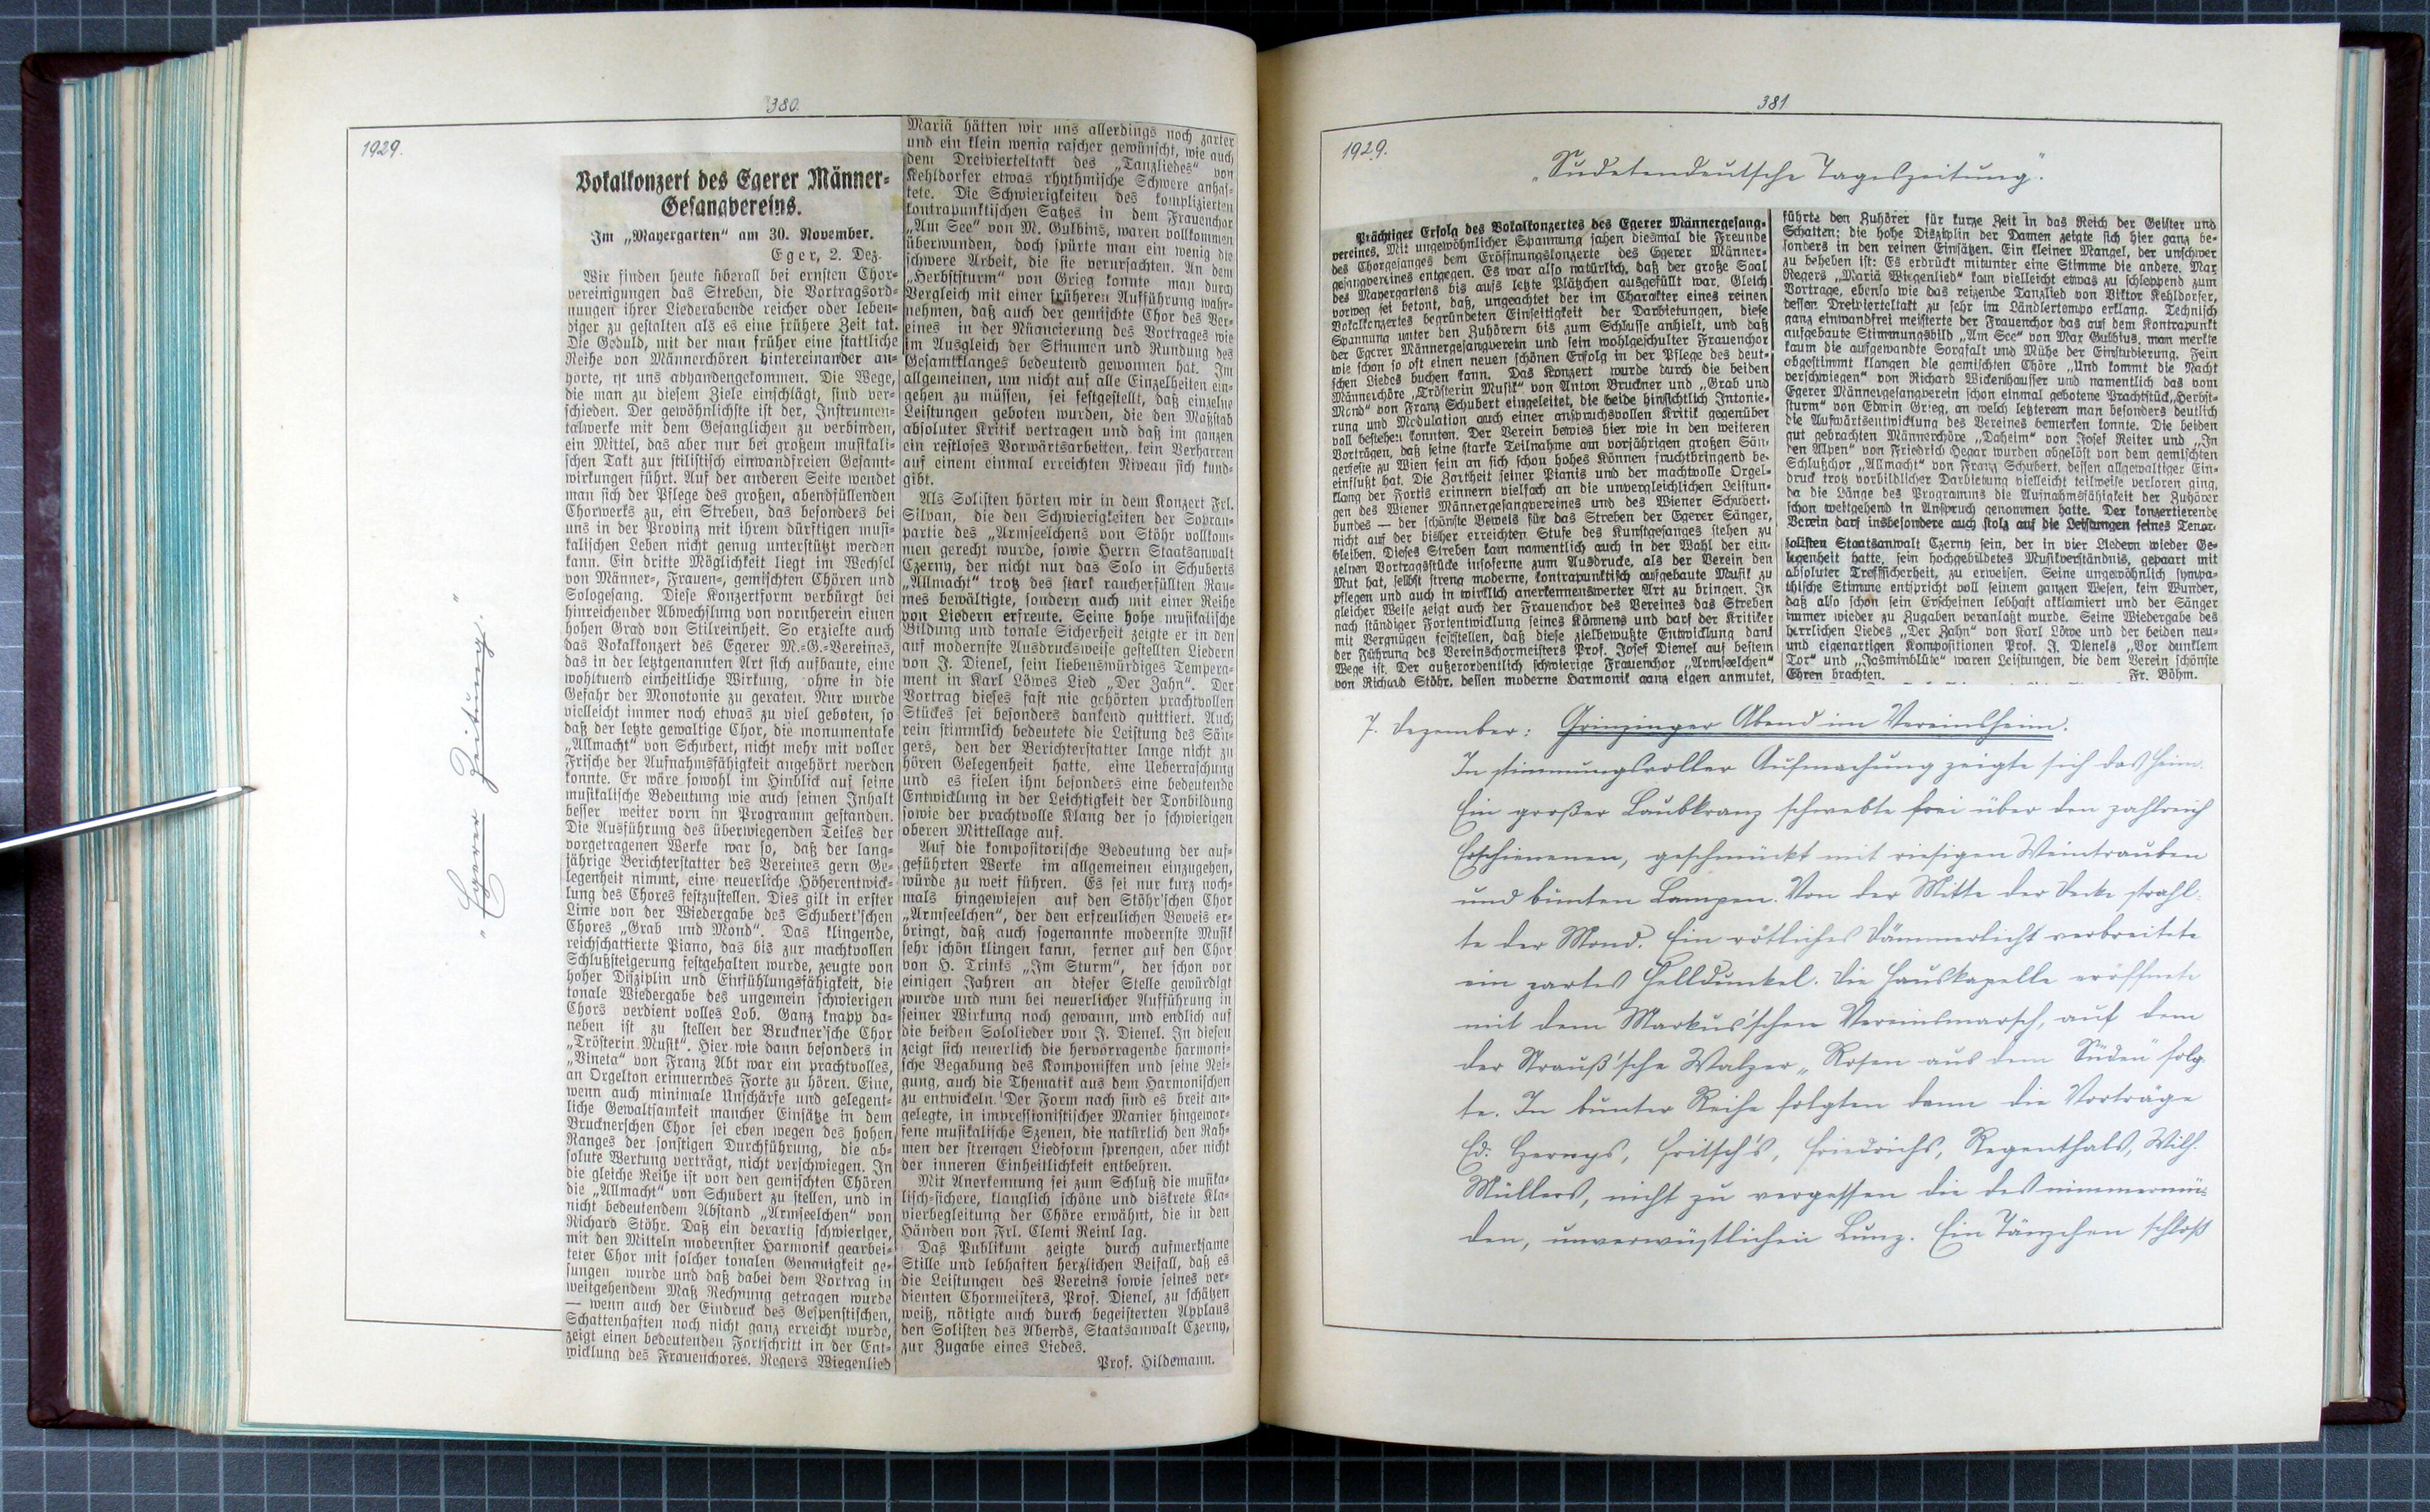 380.
1929.
„Egerer Zeitung."
Vokalkonzert des Egerer Männer-
Gesangvereins.
Im „Mayergarten" am 30. November.
Eger, 2. Dez.
Wir finden heute überall bei ernsten Chor-
vereinigungen das Streben, die Vortragsord-
nungen ihrer Liederabende reicher oder leben-
diger zu gestalten als es eine frühere Zeit tat.
Die Geduld, mit der man früher eine stattliche
Reihe von Männerchören hintereinander an-
hörte, ist uns abhandengekommen. Die Wege,
die man zu diesem Ziele einschlägt, sind ver-
schieden. Der gewöhnlichste ist der, Instrumen-
talwerke mit dem Gesanglichen zu verbinden,
ein Mittel, das aber nur bei großem musikali-
schen Takt zur stilistisch einwandfreien Gesamt-
wirkungen führt. Auf der anderen Seite wendet
man sich der Pflege des großen, abendfüllenden
Chorwerks zu, ein Streben, das besonders bei
uns in der Provinz mit ihrem dürftigen musi-
kalischen Leben nicht genug unterstützt werden
kann. Ein dritte Möglichkeit liegt im Wechsel
von Männer-, Frauen-, gemischten Chören und
Sologesang. Diese Konzertform verbürgt bei
hinreichender Abwechslung von vornherein einen
hohen Grad von Stilreinheit. So erzielte auch
das Vokalkonzert des Egerer M.-G.-Vereines,
das in der letztgenannten Art sich aufbaute, eine
wohltuend einheitliche Wirkung, ohne in die
Gefahr der Monotonie zu geraten. Nur wurde
vielleicht immer noch etwas zu viel geboten, so
daß der letzte gewaltige Chor, die monumentale
„Allmacht" von Schubert, nicht mehr mit voller
Frische der Aufnahmsfähigkeit angehört werden
konnte. Er wäre sowohl im Hinblick auf seine
musikalische Bedeutung wie auch seinen Inhalt
besser weiter vorn im Programm gestanden.
Die Ausführung des überwiegenden Teiles der
vorgetragenen Werke war so, daß der lang-
jährige Berichterstatter des Vereines gern Ge-
legenheit nimmt, eine neuerliche Höherentwick-
lung des Chores festzustellen. Dies gilt in erster
Linie von der Wiedergabe des Schubert'schen
Chores „Grab und Mond". Das klingende,
reichschattierte Piano, das bis zur machtvollen
Schlußsteigerung festgehalten wurde, zeugte von
hoher Disziplin und Einfühlungsfähigkeit, die
tonale Wiedergabe des ungemein schwierigen
Chors verdient volles Lob. Ganz knapp da-
neben ist zu stellen der Bruckner'sche Chor
„Trösterin Musik". Hier wie dann besonders in
„Vineta" von Franz Abt war ein prachtvolles,
an Orgelton erinnerndes Forte zu hören. Eine,
wenn auch minimale Unschärfe und gelegent-
liche Gewaltsamkeit mancher Einsätze in dem
Brucknerschen Chor sei eben wegen des hohen
Ranges der sonstigen Durchführung, die ab-
solute Wertung verträgt, nicht verschwiegen. In
die gleiche Reihe ist von den gemischten Chören
die „Allmacht" von Schubert zu stellen, und in
nicht bedeutendem Abstand „Armseelchen" von
Richard Stöhr. Daß ein derartig schwieriger,
mit den Mitteln modernster Harmonik gearbei-
teter Chor mit solcher tonalen Genauigkeit ge-
sungen wurde und daß dabei dem Vortrag in
weitgehendem Maß Rechnung getragen wurde
— wenn auch der Eindruck des Gespenstischen,
Schattenhaften noch nicht ganz erreicht wurde,
zeigt einen bedeutenden Fortschritt in der Ent-
wicklung des Frauenchores. Regers Wiegenlied
Mariä hätten wir uns allerdings noch zarter
und ein klein wenig rascher gewünscht, wie auch
dem Dreivierteltakt des „Tanzliedes" von
Kehldorfer etwas rhythmische Schwere anhaf-
tete. Die Schwierigkeiten des komplizierten
kontrapunktischen Satzes in dem Frauenchor
„Am See" von M. Gulbins, waren vollkommen
überwunden, doch spürte man ein wenig die
schwere Arbeit, die sie verursachten. An dem
„Herbststurm" von Grieg konnte man durch
Vergleich mit einer früheren Aufführung wahr-
nehmen, daß auch der gemischte Chor des Ver-
eines in der Nüancierung des Vortrages wie
im Ausgleich der Stimmen und Rundung des
Gesamtklanges bedeutend gewonnen hat. Im
allgemeinen, um nicht auf alle Einzelheiten ein-
gehen zu müssen, sei festgestellt, daß einzelne
Leistungen geboten wurden, die den Maßstab
absoluter Kritik vertragen und daß im ganzen
ein restloses Vorwärtsarbeiten, kein Verharren
auf einem einmal erreichten Niveau sich kund-
gibt.
Als Solisten hörten wir in dem Konzert Frl.
Silvan, die den Schwierigkeiten der Sopran-
partie des „Armseelchens von Stöhr vollkom-
men gerecht wurde, sowie Herrn Staatsanwalt
Czerny, der nicht nur das Solo in Schuberts
„Allmacht" trotz des stark raucherfüllten Rau-
mes bewältigte, sondern auch mit einer Reihe
von Liedern erfreute. Seine hohe musikalische
Bildung und tonale Sicherheit zeigte er in den
auf modernste Ausdrucksweise gestellten Liedern
von J. Dienel, sein liebenswürdiges Tempera-
ment in Karl Löwes Lied „Der Zahn". Der
Vortrag dieses fast nie gehörten prachtvollen
Stückes sei besonders dankend quittiert. Auch
rein stimmlich bedeutete die Leistung des Sän-
gers, den der Berichterstatter lange nicht zu
hören Gelegenheit hatte, eine Ueberraschung
und es fielen ihm besonders eine bedeutende
Entwicklung in der Leichtigkeit der Tonbildung
sowie der prachtvolle Klang der so schwierigen
oberen Mittellage auf.
Auf die kompositorische Bedeutung der auf-
geführten Werke im allgemeinen einzugehen,
würde zu weit führen. Es sei nur kurz noch-
mals hingewiesen auf den Stöhr'schen Chor
„Armseelchen", der den erfreulichen Beweis er-
bringt, daß auch sogenannte modernste Musik
sehr schön klingen kann, ferner auf den Chor
von H. Trinks „Im Sturm", der schon vor
einigen Jahren an dieser Stelle gewürdigt
wurde und nun bei neuerlicher Aufführung in
seiner Wirkung noch gewann, und endlich auf
die beiden Sololieder von J. Dienel. In diesen
zeigt sich neuerlich die hervorragende harmoni-
sche Begabung des Komponisten und seine Nei-
gung, auch die Thematik aus dem Harmonischen
zu entwickeln. Der Form nach sind es breit an-
gelegte, in impressionistischer Manier hingewor-
fene musikalische Szenen, die natürlich den Rah-
men der strengen Liedform sprengen, aber nicht
der inneren Einheitlichkeit entbehren.
Mit Anerkennung sei zum Schluß die musika-
lisch-sichere, klanglich schöne und diskrete Kla-
vierbegleitung der Chöre erwähnt, die in den
Händen von Frl. Clemi Reinl lag.
Das Publikum zeigte durch aufmerksame
Stille und lebhaften herzlichen Beifall, daß es
die Leistungen des Vereins sowie seines ver-
dienten Chormeisters, Prof. Dienel, zu schätzen
weiß, nötigte auch durch begeisterten Applaus
den Solisten des Abends, Staatsanwalt Czerny,
zur Zugabe eines Liedes.
Prof. Hildemann.
381
1929.
„Sudetendeutsche Tageszeitung".
Prächtiger Erfolg des Vokalkonzertes des Egerer Männergesang-
vereines. Mit ungewöhnlicher Spannung sahen diesmal die Freunde
des Chorgesanges dem Eröffnungskonzerte des Egerer Männer-
gesangvereines entgegen. Es war also natürlich, daß der große Saal
des Mayergartens bis aufs letzte Plätzchen ausgefüllt war. Gleich
vorweg sei betont, daß, ungeachtet der im Charakter eines reinen
Vokalkonzertes begründeten Einseitigkeit der Darbietungen, diese
Spannung unter den Zuhörern bis zum Schlusse anhielt, und daß
der Egerer Männergesangverein und sein wohlgeschulter Frauenchor
wie schon so oft einen neuen schönen Erfolg in der Pflege des deut-
schen Liedes buchen kann. Das Konzert wurde durch die beiden
Männerchöre „Trösterin Musik" von Anton Bruckner und „Grab und
Mond" von Franz Schubert eingeleitet, die beide hinsichtlich Intonie-
rung und Modulation auch einer anspruchsvollen Kritik gegenüber
voll bestehen konnten. Der Verein bewies hier wie in den weiteren
Vorträgen, daß seine starke Teilnahme am vorjährigen großen Sän-
gerfeste zu Wien sein an sich schon hohes Können fruchtbringend be-
einflußt hat. Die Zartheit seiner Pianis und der machtvolle Orgel-
klang der Fortis erinnern vielfach an die unvergleichlichen Leistun-
gen des Wiener Männergesangvereines und des Wiener Schubert-
bundes — der schönste Beweis für das Streben der Egerer Sänger,
nicht auf der bisher erreichten Stufe des Kunstgesanges stehen zu
bleiben. Dieses Streben kam namentlich auch in der Wahl der ein-
zelnen Vortragsstücke insoferne zum Ausdrucke, als der Verein den
Mut hat, selbst streng moderne, kontrapunktisch aufgebaute Musik zu
pflegen und auch in wirklich anerkennenswerter Art zu bringen. In
gleicher Weise zeigt auch der Frauenchor des Vereines das Streben
nach ständiger Fortentwicklung seines Könnens und darf der Kritiker
mit Vergnügen feststellen, daß diese zielbewußte Entwicklung dank
der Führung des Vereinschormeisters Prof. Josef Dienel auf bestem
Wege ist. Der außerordentlich schwierige Frauenchor „Armseelchen"
von Richard Stöhr, dessen moderne Harmonik ganz eigen anmutet,
führte den Zuhörer für kurze Zeit in das Reich der Geister und
Schatten; die hohe Disziplin der Damen zeigte sich hier ganz be-
sonders in den reinen Einsätzen. Ein kleiner Mangel, der unschwer
zu beheben ist: Es erdrückt mitunter eine Stimme die andere. Max
Regers „Mariä Wiegenlied" kam vielleicht etwas zu schleppend zum
Vortrage, ebenso wie das reizende Tanzlied von Viktor Kehldorfer,
dessen Dreivierteltakt zu sehr im Ländlertempo erklang. Technisch
ganz einwandfrei meisterte der Frauenchor das auf dem Kontrapunkt
aufgebaute Stimmungsbild „Am See" von Max Gulbius, man merkte
kaum die aufgewandte Sorgfalt und Mühe der Einstudierung. Fein
abgestimmt klangen die gemischten Chöre „Und kommt die Nacht
verschwiegen" von Richard Wickenhausser und namentlich das vom
Egerer Männergesangverein schon einmal gebotene Prachtstück „Herbst-
sturm" von Edwin Grieg, an welch letzterem man besonders deutlich
die Aufwärtsentwicklung des Vereines bemerken konnte. Die beiden
gut gebrachten Männerchöre „Daheim" von Josef Reiter und „In
den Alpen" von Friedrich Hegar wurden abgelöst von dem gemischten
Schlußchor „Allmacht" von Franz Schubert, dessen allgewaltiger Ein-
druck trotz vorbildlicher Darbietung vielleicht teilweise verloren ging,
da die Länge des Programms die Aufnahmsfähigkeit der Zuhörer
schon weitgehend in Anspruch genommen hatte. Der konzertierende
Verein darf insbesondere auch stolz auf die Leistungen seines Tenor-
solisten Staatsanwalt Czerny sein, der in vier Liedern wieder Ge-
legenheit hatte, sein hochgebildetes Musikverständnis, gepaart mit
absoluter Treffsicherheit, zu erweisen. Seine ungewöhnlich sympa-
thische Stimme entspricht voll seinem ganzen Wesen, kein Wunder,
daß also schon sein Erscheinen lebhaft akklamiert und der Sänger
immer wieder zu Zugaben veranlaßt wurde. Seine Wiedergabe des
herrlichen Liedes „Der Zahn" von Karl Löwe und der beiden neu-
und eigenartigen Kompositionen Prof. J. Dienels „Vor dunklem
Tor" und „Jasminblüte" waren Leistungen, die dem Verein schönste
Ehren brachten.
Fr. Böhm.
7. Dezember: Grinzinger Abend im Vereinsheim.
In stimmungsvoller Aufmachung zeigte sich das Heim.
Ein großer Laubkranz schwebte frei über den zahlreich
Erschienenen, geschmückt mit riesigen Weintrauben
und bunten Lampen. Von der Mitte der Decke strahl-
te der Mond. Ein rötliches Dämmerlicht verbreitete
ein zartes Helldunkel. Die Hauskapelle eröffnete
mit dem Markus'schen Vereinsmarsch, auf dem
der Strauß'sche Walzer „Rosen aus dem Süden" folg-
te. In bunter Reihe folgten dann die Vorträge
Ed. Czernys, Fritsch's, Friedrichs, Regenthals, Wilh.
Müllers, nicht zu vergessen die des nimmermü-
den, unverwüstlichen Lunz. Ein Tänzchen schloß